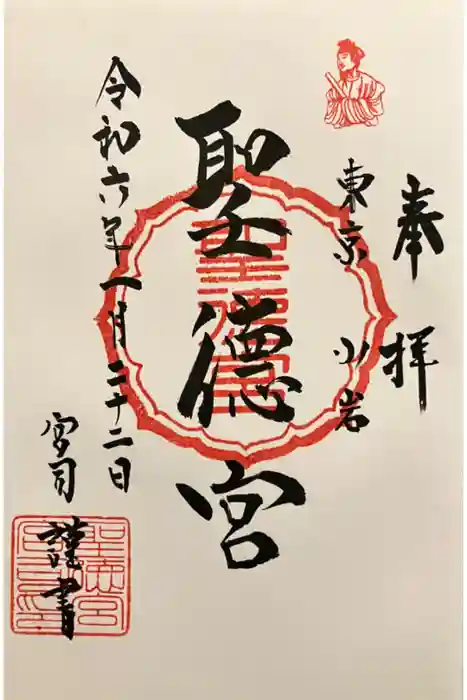 奉拝
東京 小岩
聖徳宮
令和六年一月二十二日
宮司 謹書